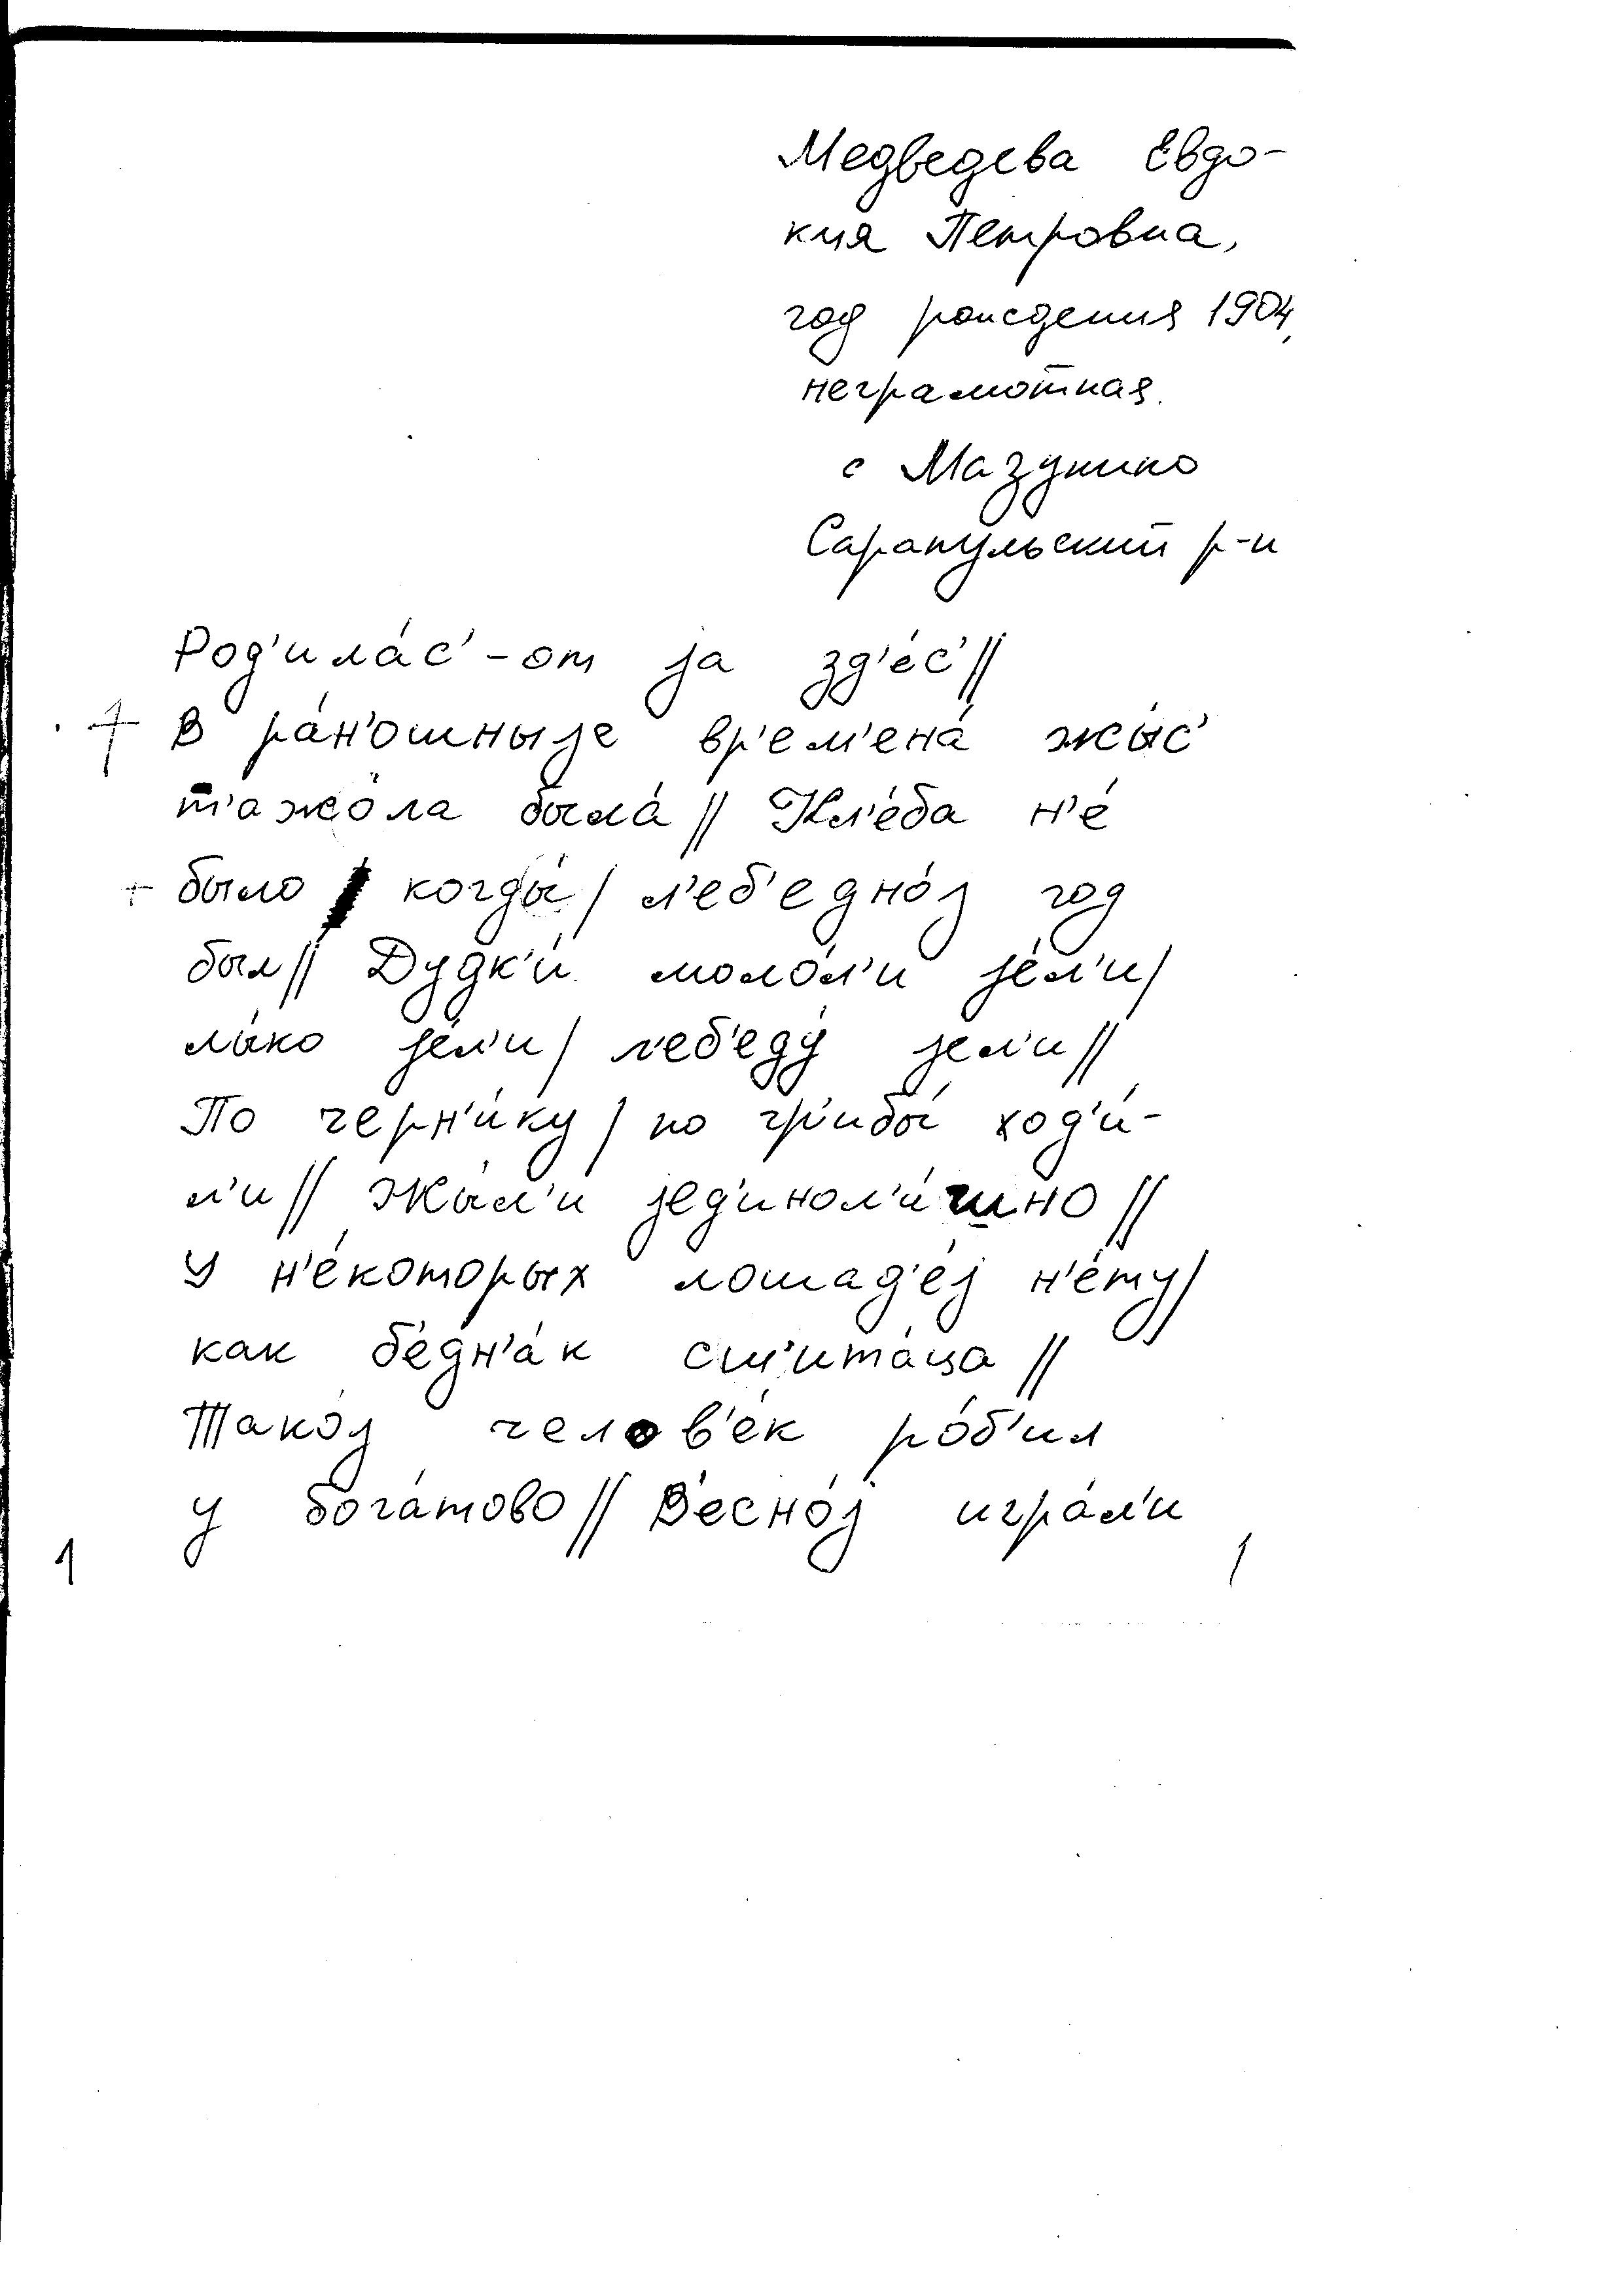 Медведева Евдо-
кия Петровна,
год рождения 1904,
неграмотная.
с Мазунино
Сарапульский р-н
Род'ила́с'-от ја зд'е́с'//
+ В ра́н'ошныје вр'ем'ена́ жы́с'
т'ажо́ла была́ // Хл'е́ба н'е́
+ было когды́ / л'еб'едно́ј год
был // Дудк'и́ моло́л'и је́л'и /
лы́ко је́л'и / л'еб'еду́ јел'и //
По черн'и́ку / по гр'ибы́ ход'и́-
л'и // Жы́л'и јед'инол'и́шно //
У н'е́которых лошад'е́ј н'е́ту /
как б'едн'а́к сш'ита́ца //
Тако́ј челов'е́к ро́б'ил
у бога́тово // В'есно́ј игра́л'и
1 1